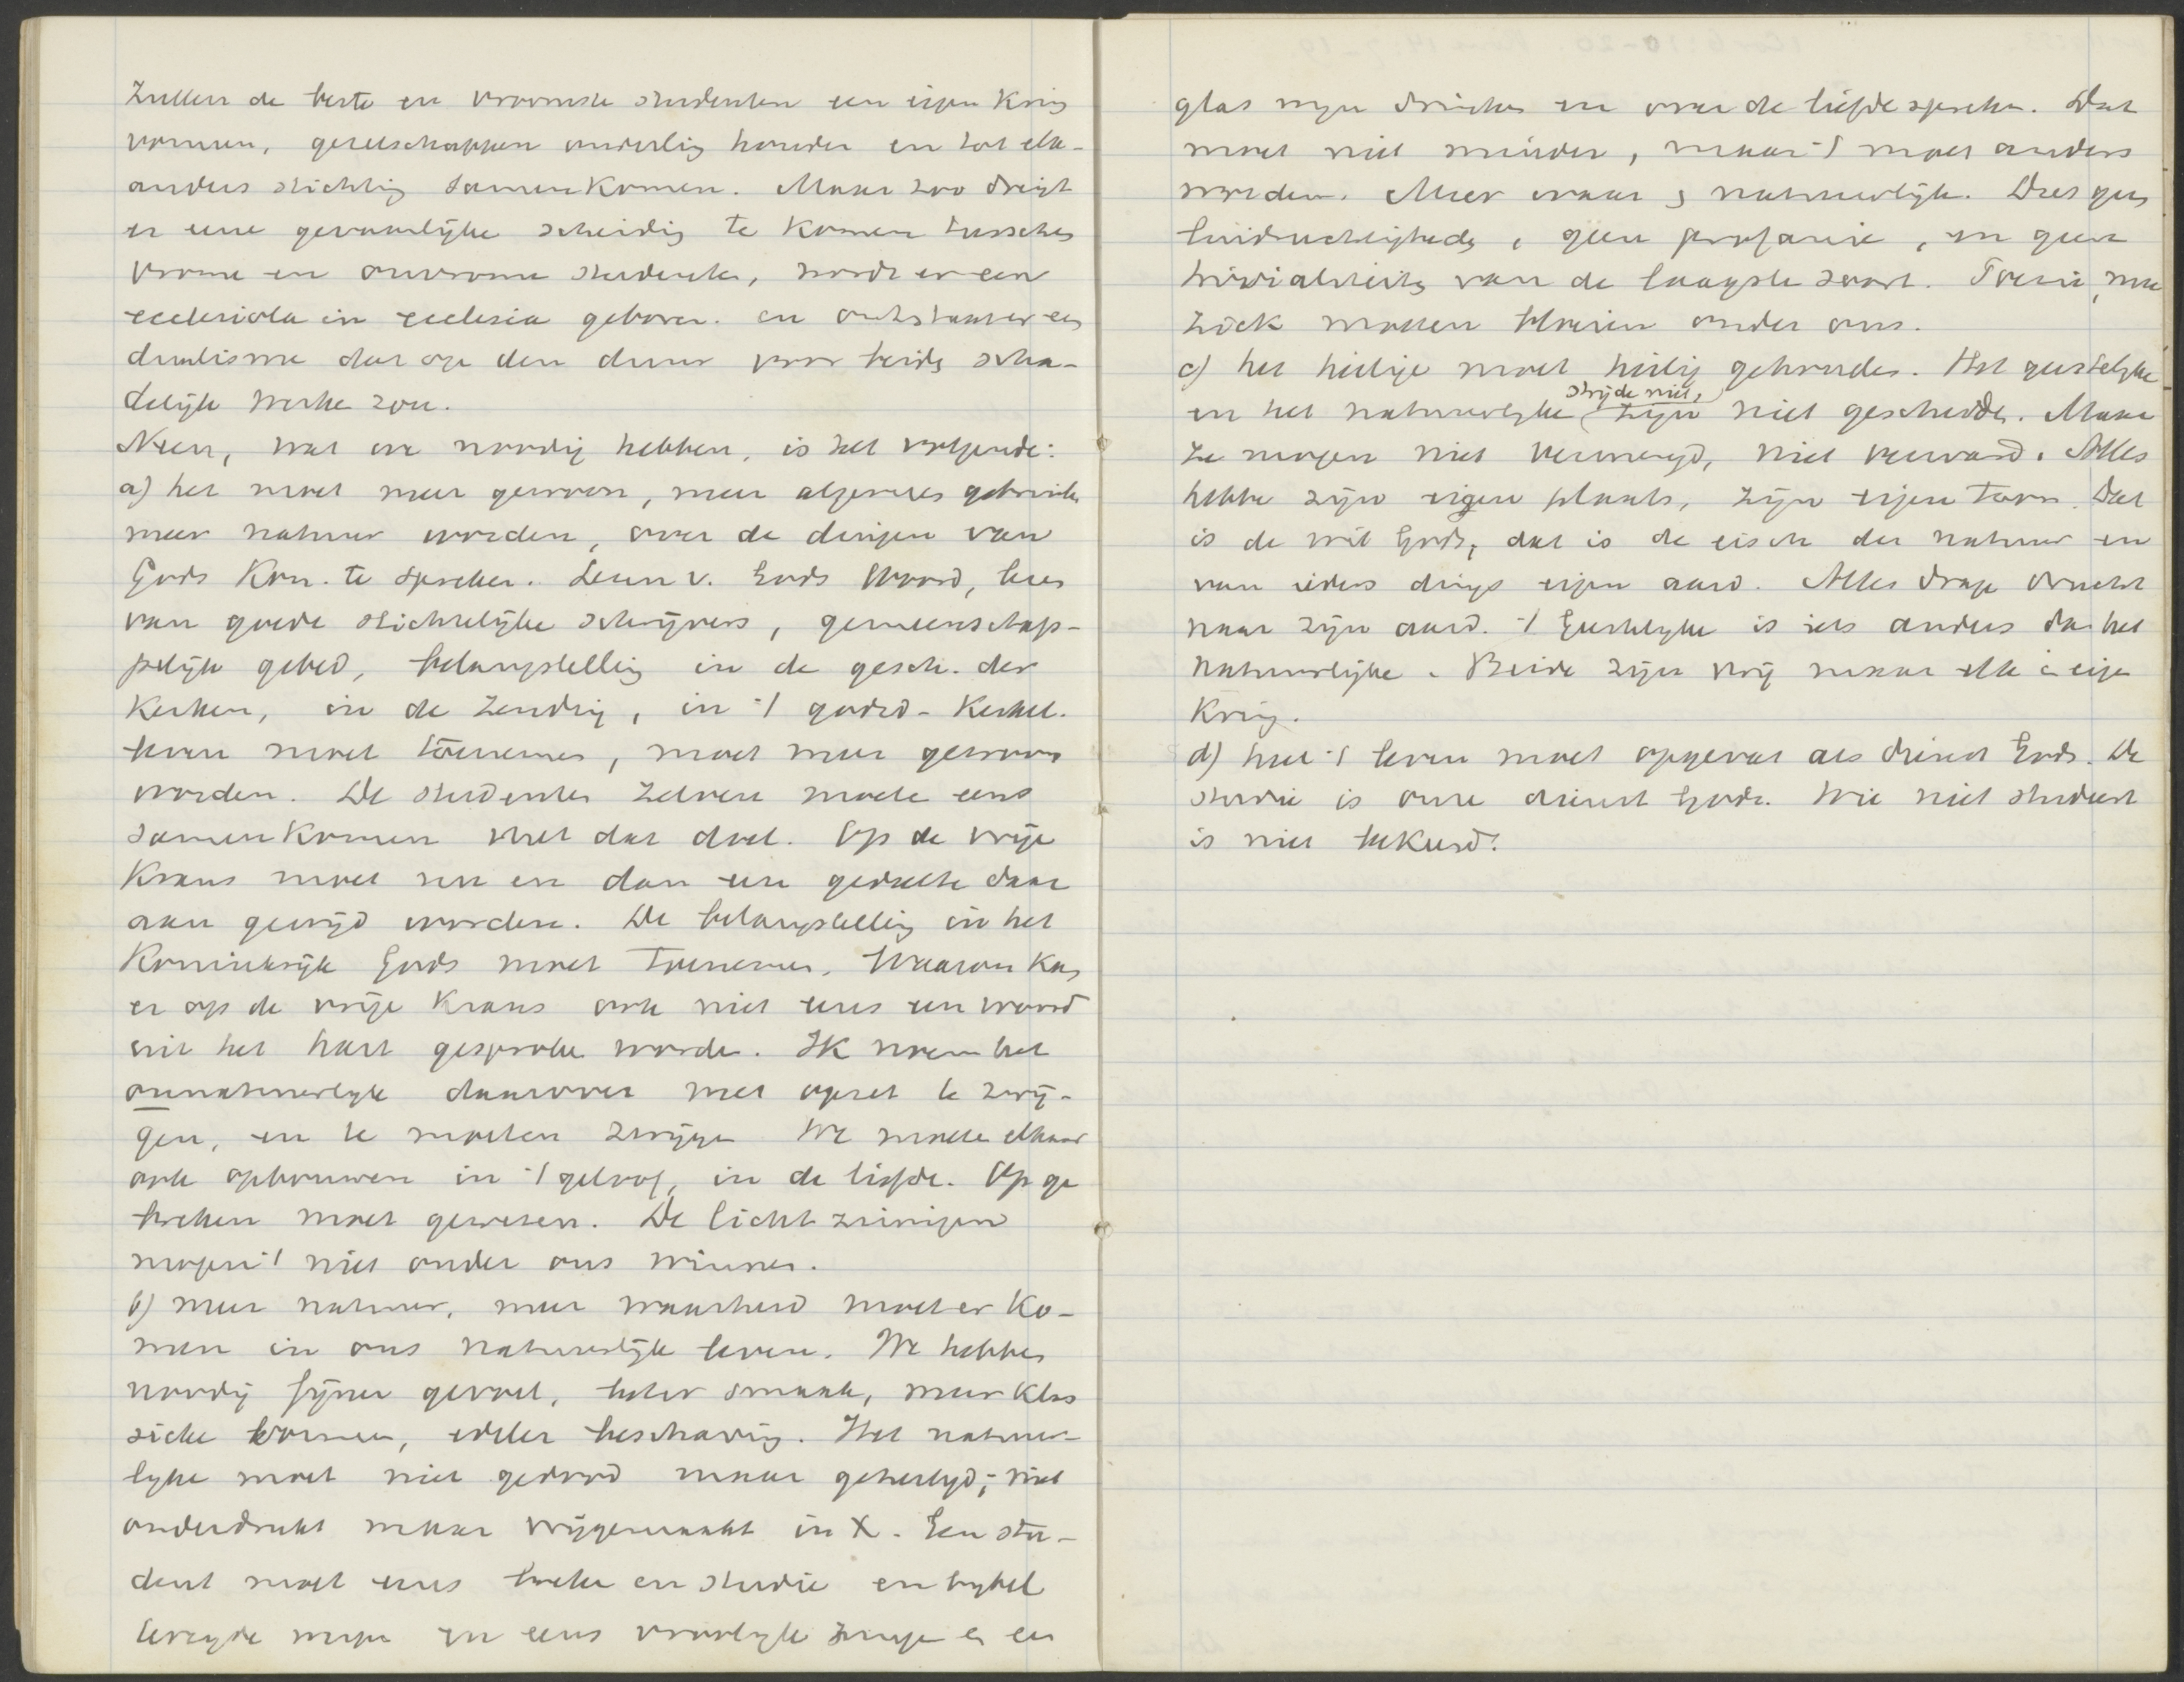 zullen de beste en vroomste studenten een eigen kring
vormen, gezelschappen onderling houden en tot elk-
anders stichting samenkomen. Maar zoo dreigt
er eene gevaarlijke scheiding te komen tusschen
vrome en onvrome studenten, wordt er een
ecclesiola in ecclesia geboren. en ontstaat er een
dualisme dat op den duur voor beide scha-
delijk werken zou.
Neen, wat we noodig hebben, is het volgende:
a) het moet meer gewoon, meer algemeen gebruik
meer natuur worden, over de dingen van
Gods Kon. te spreken. Lezen v. Gods Woord, lezen
van goede stichtelijke schrijvers, gemeenschap-
pelijk gebed, belangstelling in de gesch. der
Kerken, in de Zending, in 't godsd-Kerkel.
leven moet toenemen, moet meer gewoon
worden. De studenten zelven moeten eens
samenkomen met dat doel. Op de vrije
Krans moet nu en dan een gedeelte daar
aan gewijd worden. De belangstelling in het
Koninkrijk Gods moet toenemen. Waarom kan
er op de vrije Krans ook niet eens een woord
uit het hart gesproken worden. Ik noem het
onnatuurlijk daarover met opzet te zwij-
gen, en te moeten zwijgen We moeten elkaar
ook opbouwen in 't geloof, in de liefde. Op ge
breken moet gewezen. De lichtzinnigen
mogen 't niet onder ons winnen.
b) meer natuur, meer waarheid moet er ko-
men in ons natuurlijk leven. We hebben
noodig fijner gevoel, beter smaak, meer klas
sieke vormen, edeler beschaving. Het natuur-
lijke moet niet gedood maar geheiligd; niet
onderdrukt maar vrijgemaakt in X. Een stu-
dent moet eens breken en studie en bijbel
lezen en eens vroolijk zingen en een
glas wijn drinken en over de liefde spreken. Dat
moet niet minder, maar 't moet anders
worden. Meer waar & natuurlijk. Dus geen
luidruchtigheden, geen profanie, en geen
trivialiteiten van de laagste soort. Poezie, mu
ziek moeten bloeien onder ons.
c) het heilige moet heilig gehouden. Het geestelijke
strijde niet,
en het natuurlijke zijn niet gescheiden. Maar
ze mogen niet vermengd, niet verward. Alles
hebbe zijn eigen plaats, zijn eigen toon. Dat
is de wil Gods, dat is de eisch der natuur en
van ieders dings eigen aard. Alles drage vrucht
naar zijn aard. 't Geestelijke is iets anders dan het
natuurlijke. Beide zijn vrij maar elk in eigen
Kring.
d) heel 't leven moet opgevat als dienst Gods. De
studie is onze dienst Gods. Wie niet studeert
is niet bekeerd!